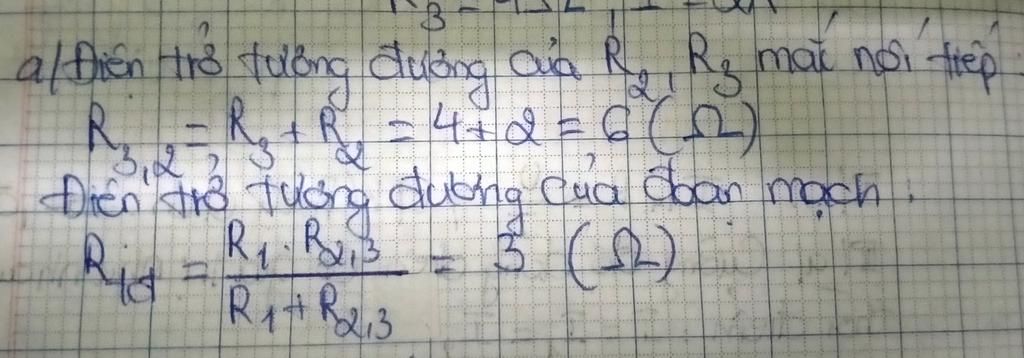 a/ Điện trở tương đương của R₂, R₃ mắc nối tiếp
R₃,₂ = R₃ + R₂ = 4 + 2 = 6 (Ω)
Điện trở tương đương của đoạn mạch:
Rtđ = (R₁ . R₂,₃) / (R₁ + R₂,₃) = 3 (Ω)